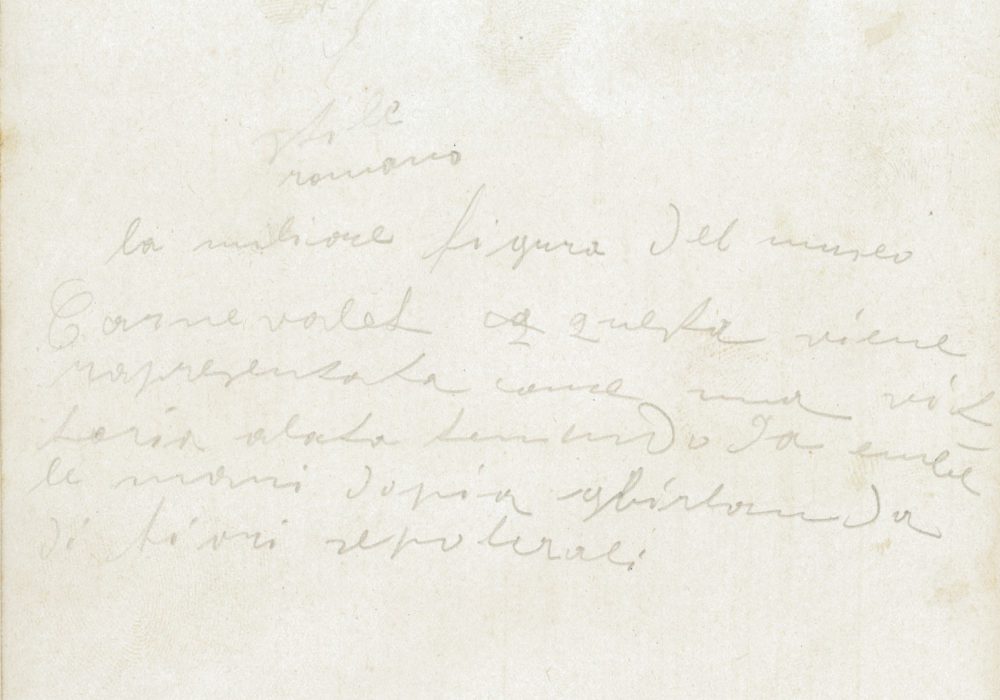 stile
romano
la miliore figura del museo
Carnevalet e questa viene
rapresentata come una vit
toria alata tenendo da entre
le mani dopia ghirlanda
di fiori sepolcrali